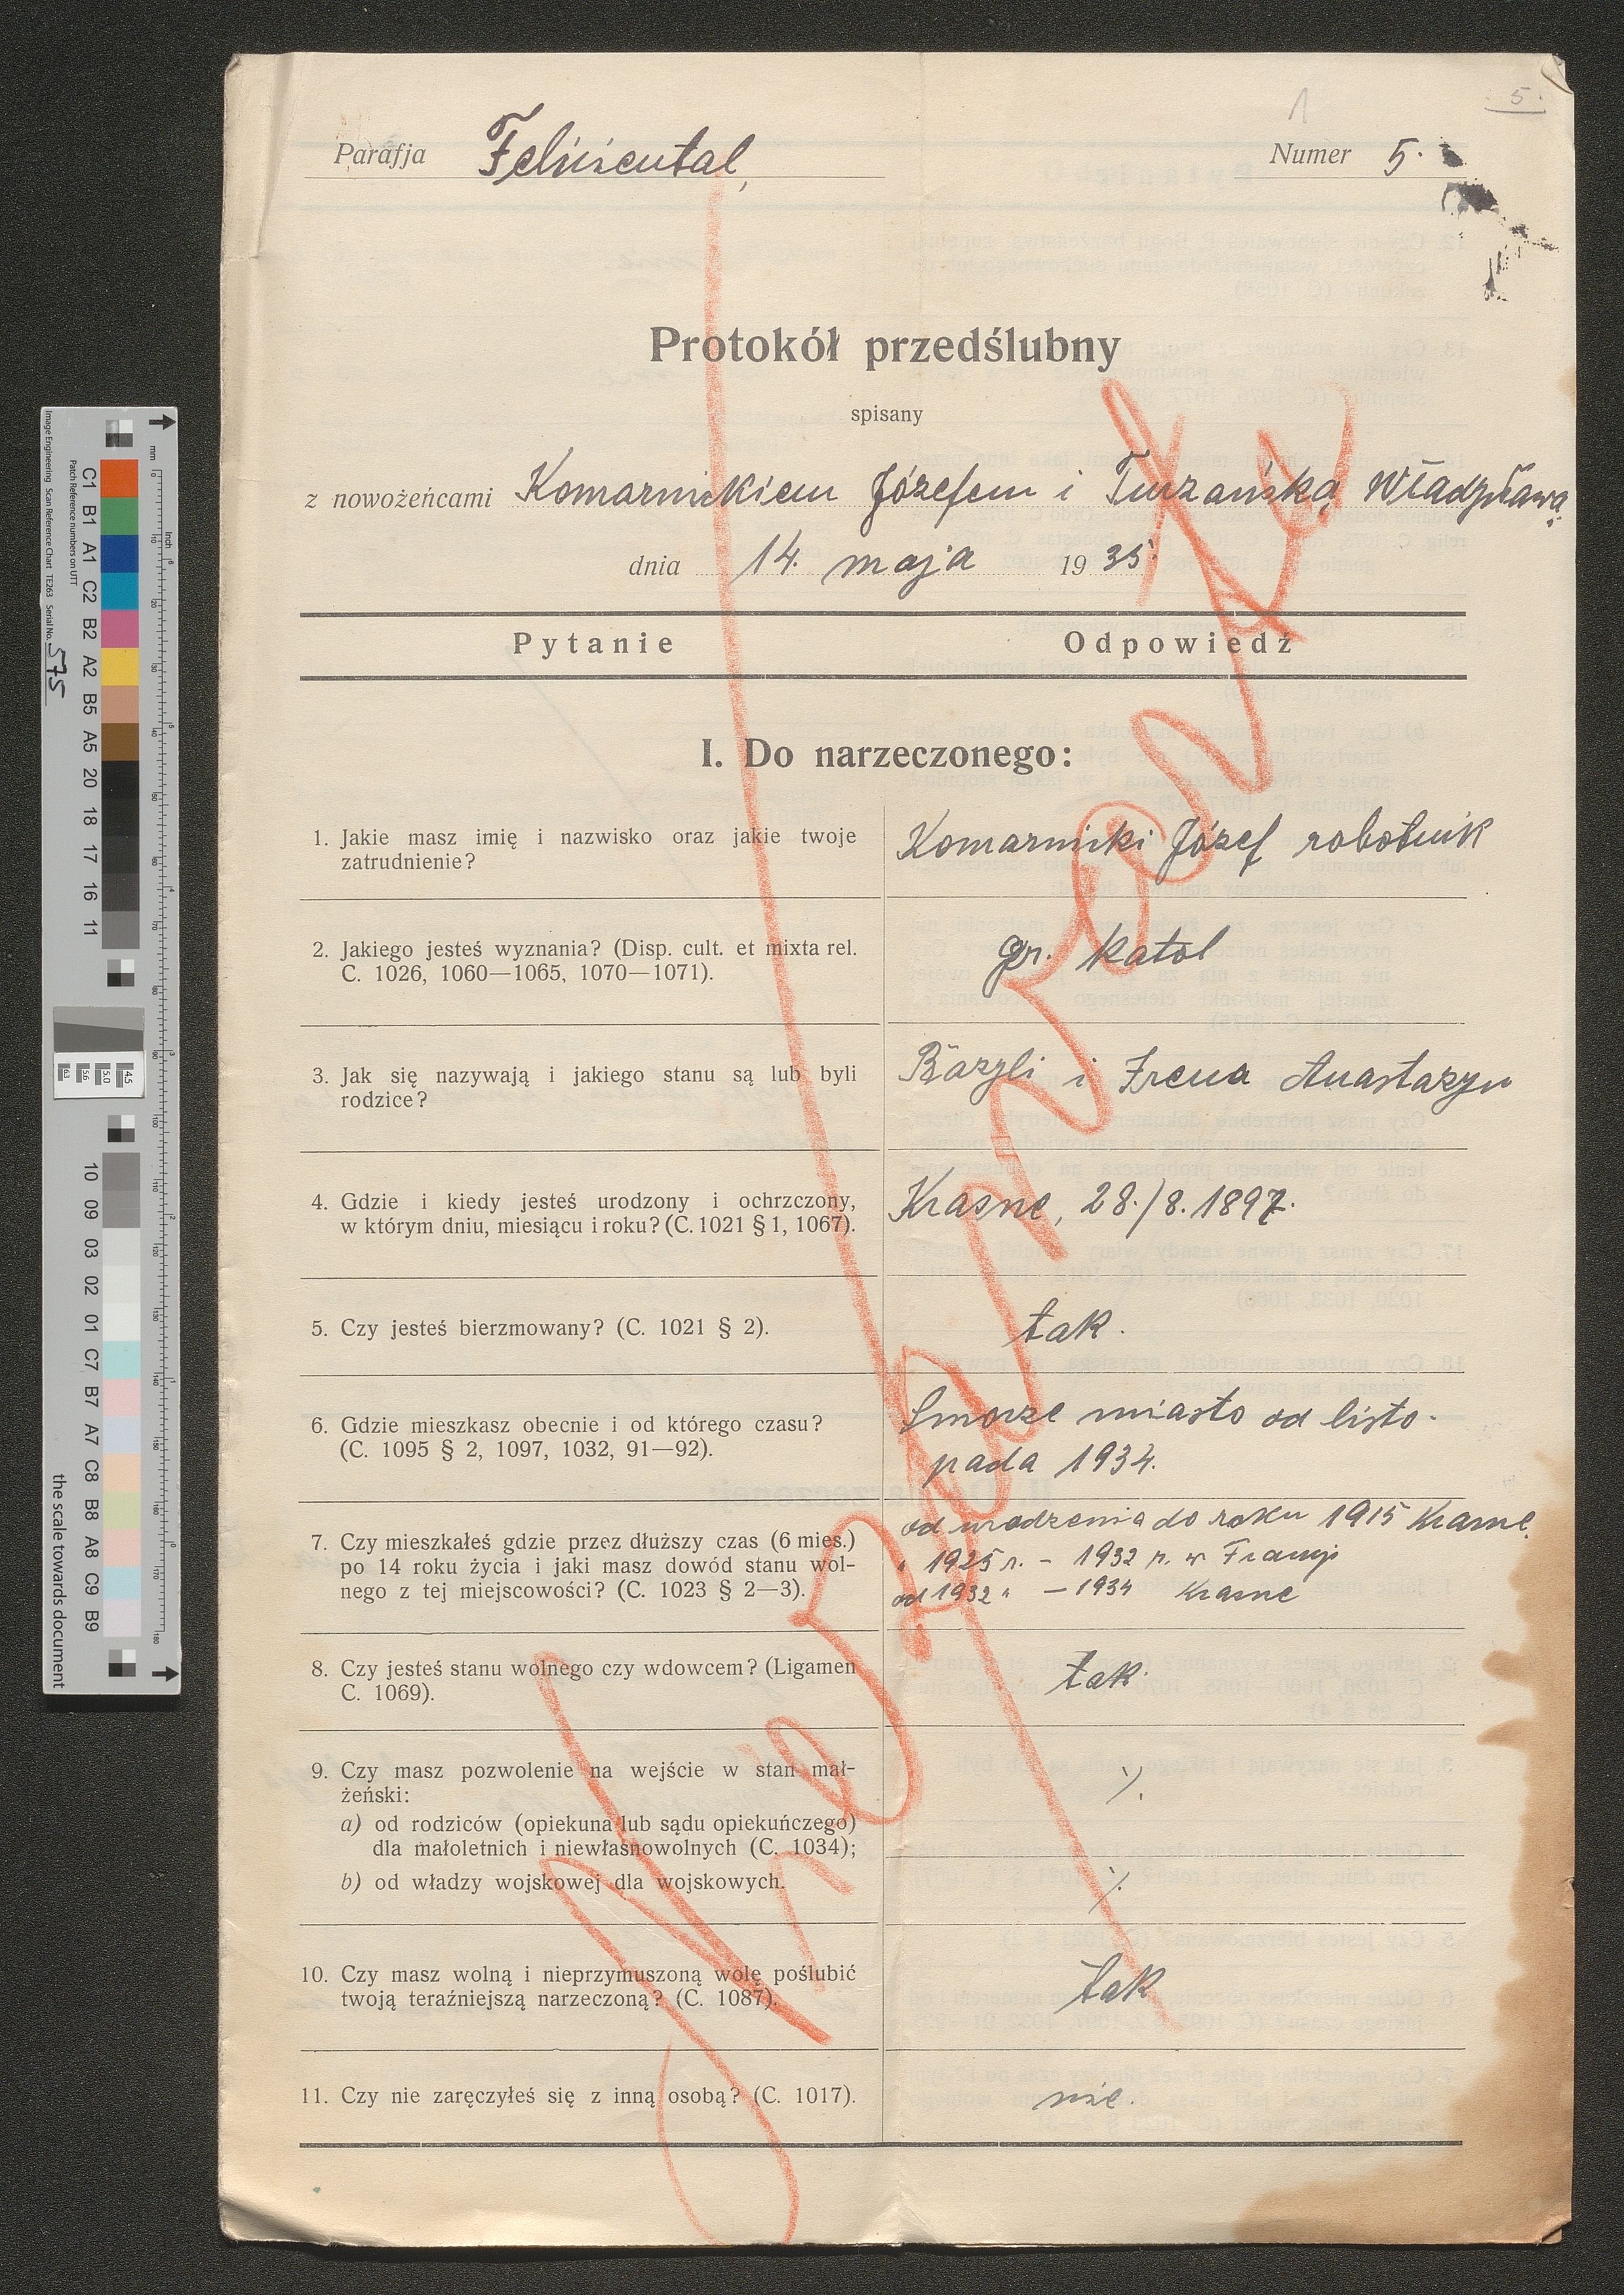 5.
1
Parafja Feliziental,
Numer 5.
Protokół przedślubny
spisany
z nowożeńcami Komarnickiem Józefem i Turzańską Władysławą
dnia 14. maja 1935.
Pytanie Odpowiedź
I. Do narzeczonego:
1. Jakie masz imię i nazwisko oraz jakie twoje
zatrudnienie?
Komarnicki Józef robotnik
2. Jakiego jesteś wyznania? (Disp. cult. et mixta rel.
C. 1026, 1060—1065, 1070—1071).
gr. katol
3. Jak się nazywają i jakiego stanu są lub byli
rodzice?
Bazyli i Irena Anastazyn
4. Gdzie i kiedy jesteś urodzony i ochrzczony,
w którym dniu, miesiącu i roku? (C. 1021 § 1, 1067).
Krasne, 28./8. 1897.
5. Czy jesteś bierzmowany? (C. 1021 § 2).
tak.
6. Gdzie mieszkasz obecnie i od którego czasu?
(C. 1095 § 2, 1097, 1032, 91—92).
Smorze miasto od listo-
pada 1934.
7. Czy mieszkałeś gdzie przez dłuższy czas (6 mies.)
po 14 roku życia i jaki masz dowód stanu wol-
nego z tej miejscowości? (C. 1023 § 2—3).
od urodzenia do roku 1915 Krasne
" 1925 r. - 1932 r. w Francji
od 1932 " - 1934 Krasne
8. Czy jesteś stanu wolnego czy wdowcem? (Ligamen
C. 1069).
tak.
9. Czy masz pozwolenie na wejście w stan mał-
żeński:
a) od rodziców (opiekuna lub sądu opiekuńczego)
dla małoletnich i niewłasnowolnych (C. 1034);
b) od władzy wojskowej dla wojskowych.
10. Czy masz wolną i nieprzymuszoną wolę poślubić
twoją teraźniejszą narzeczoną? (C. 1087).
tak
11. Czy nie zaręczyłeś się z inną osobą? (C. 1017).
nie.
Image Engineering Scan Reference Chart TE263 Serial No. 575
Patch Reference numbers on UTT
C1 B1 A1 C2 B2 A2 B5 A5 20 18 17 16 11
10 09 03 02 01 C7 B7 A7 C8 B8 A8 C9 B9
the scale towards document